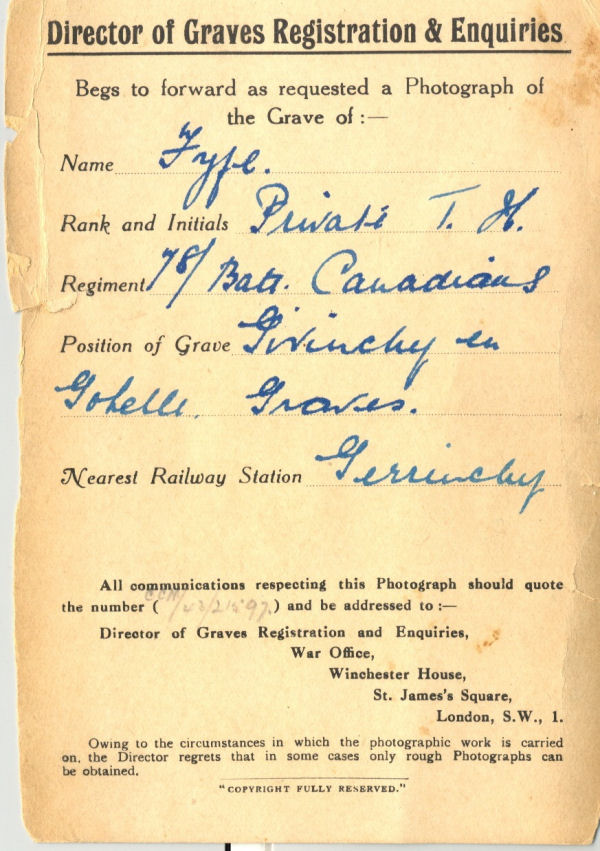 Director of Graves Registration & Enquiries
Begs to forward as requested a Photograph of
the Grave of :—
Name Fyfe.
Rank and Initials Private T. H.
Regiment 78/ Batt. Canadians
Position of Grave Givinchy en
Gohelle. Graves.
Nearest Railway Station Gerrinchy
All communications respecting this Photograph should quote
the number ( ) and be addressed to :—
Director of Graves Registration and Enquiries,
War Office,
Winchester House,
St. James's Square,
London, S.W., 1.
Owing to the circumstances in which the photographic work is carried
on, the Director regrets that in some cases only rough Photographs can
be obtained.
"COPYRIGHT FULLY RESERVED."